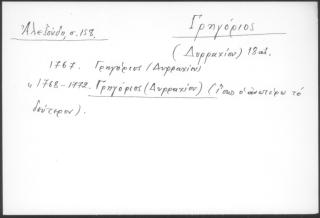 Ἀλεξούδη, σ. 158.
Γρηγόριος
(Δυρραχίου) 18 αι.
1767. Γρηγόριος (Δυρραχίου)
" 1768-1772. Γρηγόριος (Δυρραχίου) (ἴσως ὁ ἀνωτέρω τό
δεύτερον).